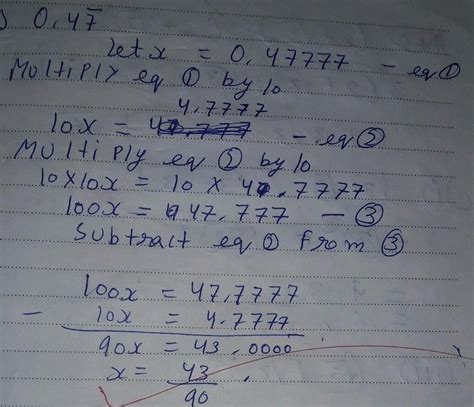 ) 0.47̅
let x = 0.47777 – eq ①
Multiply eq ① by 10
4.7777
10x = – eq ②
Multiply eq ② by 10
10x10x = 10 x 4.7777
100x = 47.777 – ③
Subtract eq ② from ③
100x = 47.7777
– 10x = 4.7777
90x = 43.0000
x = 43
90